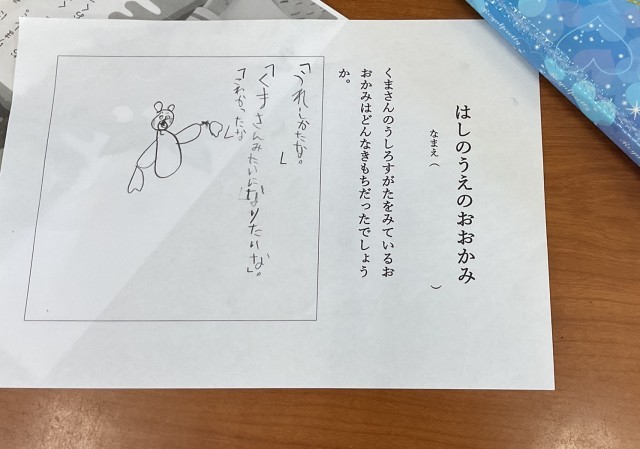 はしのうえのおおかみ
なまえ（　　　）
くまさんのうしろすがたをみているお
おかみはどんなきもちだったでしょう
か。
「うれしかたな。」
「くまさんみたいになりたいな」。
「こわかったな」